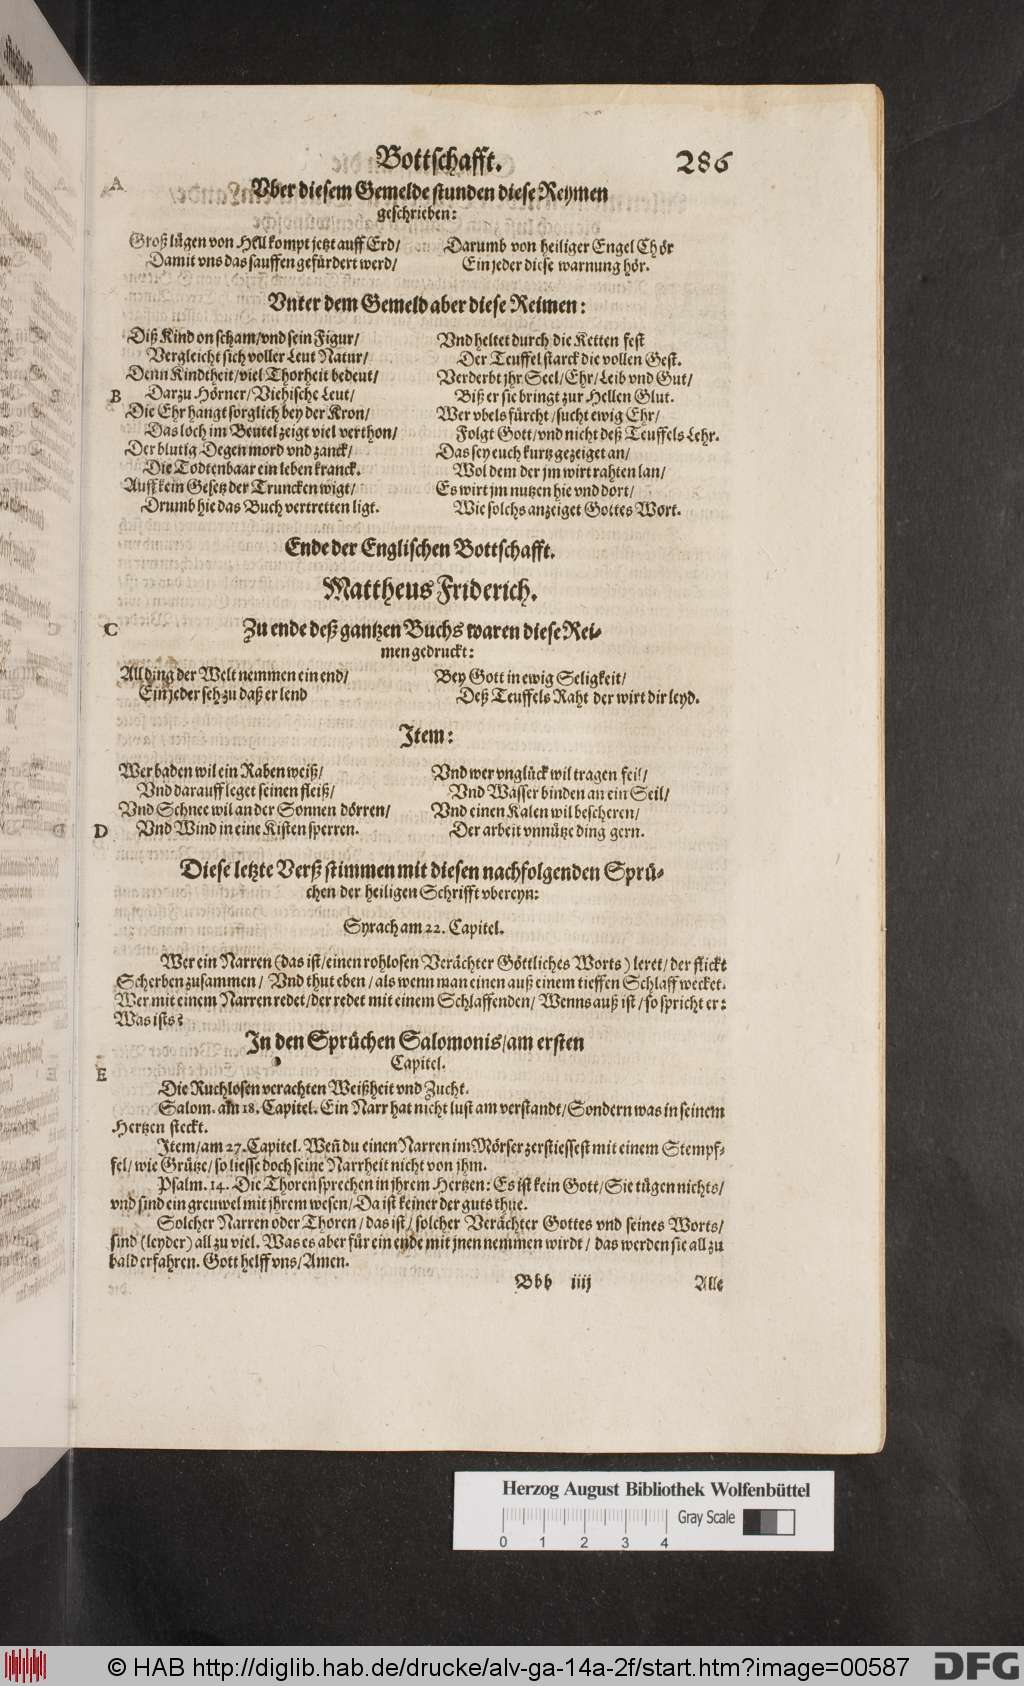 Bottschafft. 286
A
Vber diesem Gemelde stunden diese Reymen
geschrieben:
Groß lügen von Hell kompt jetzt auff Erd/
Damit vns das sauffen gefürdert werd/
Darumb von heiliger Engel Chör
Ein jeder diese warnung hör.
Vnter dem Gemeld aber diese Reimen:
Diß Kind on scham/vnd sein Figur/
Vergleicht sich voller Leut Natur/
Denn Kindtheit/viel Thorheit bedeut/
B
Darzu Hörner/Viehische Leut/
Die Ehr hangt sorglich bey der Kron/
Das loch im Beutel zeigt viel verthon/
Der blutig Degen mord vnd zanck/
Die Todtenbaar ein leben kranck.
Auff kein Gesetz der Truncken wigt/
Drumb hie das Buch vertretten ligt.
Vnd heltet durch die Ketten fest
Der Teuffel starck die vollen Gest.
Verderbt jhr Seel/Ehr/Leib vnd Gut/
Biß er sie bringt zur Hellen Glut.
Wer vbels fürcht/sucht ewig Ehr/
Folgt Gott/vnd nicht deß Teuffels Lehr.
Das sey euch kurtz gezeiget an/
Wol dem der jm wirt rahten lan/
Es wirt jm nutzen hie vnd dort/
Wie solchs anzeiget Gottes Wort.
Ende der Englischen Bottschafft.
Mattheus Friderich.
C
Zu ende deß gantzen Buchs waren diese Rei-
men gedruckt:
All ding der Welt nemmen ein end/
Ein jeder seh zu daß er lend
Bey Gott in ewig Seligkeit/
Deß Teuffels Raht der wirt dir leyd.
Item:
Wer baden wil ein Raben weiß/
Vnd darauff leget seinen fleiß/
Vnd Schnee wil an der Sonnen dörren/
D
Vnd Wind in eine Kisten sperren.
Vnd wer vnglück wil tragen feil/
Vnd Wasser binden an ein Seil/
Vnd einen Kalen wil bescheren/
Der arbeit vnnütze ding gern.
Diese letzte Verß stimmen mit diesen nachfolgenden Sprü-
chen der heiligen Schrifft vbereyn:
Syrach am 22. Capitel.
Wer ein Narren (das ist/einen rohlosen Verächter Göttliches Worts) leret/der flickt
Scherben zusammen/ Vnd thut eben/als wenn man einen auß einem tieffen Schlaff wecket.
Wer mit einem Narren redet/der redet mit einem Schlaffenden/ Wenns auß ist/so spricht er:
Was ists?
In den Sprüchen Salomonis/am ersten
Capitel.
E
Die Ruchlosen verachten Weißheit vnd Zucht.
Salom. am 18. Capitel. Ein Narr hat nicht lust am verstandt/Sondern was in seinem
Hertzen steckt.
Item/am 27. Capitel. Weñ du einen Narren im Mörser zerstiessest mit einem Stempf-
fel/wie Grütze/so liesse doch seine Narrheit nicht von jhm.
Psalm. 14. Die Thoren sprechen in jhrem Hertzen: Es ist kein Gott/Sie tügen nichts/
vnd sind ein greuwel mit jhrem wesen/Da ist keiner der guts thue.
Solcher Narren oder Thoren/das ist/solcher Verächter Gottes vnd seines Worts/
sind (leyder) all zu viel. Was es aber für ein ende mit jnen nemmen wirdt/ das werden sie all zu
bald erfahren. Gott helff vns/Amen.
Bbb iiij Alle
Herzog August Bibliothek Wolfenbüttel
Gray Scale
0 1 2 3 4
© HAB http://diglib.hab.de/drucke/alv-ga-14a-2f/start.htm?image=00587
DFG